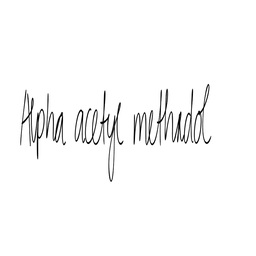 Alpha acetyl methadol